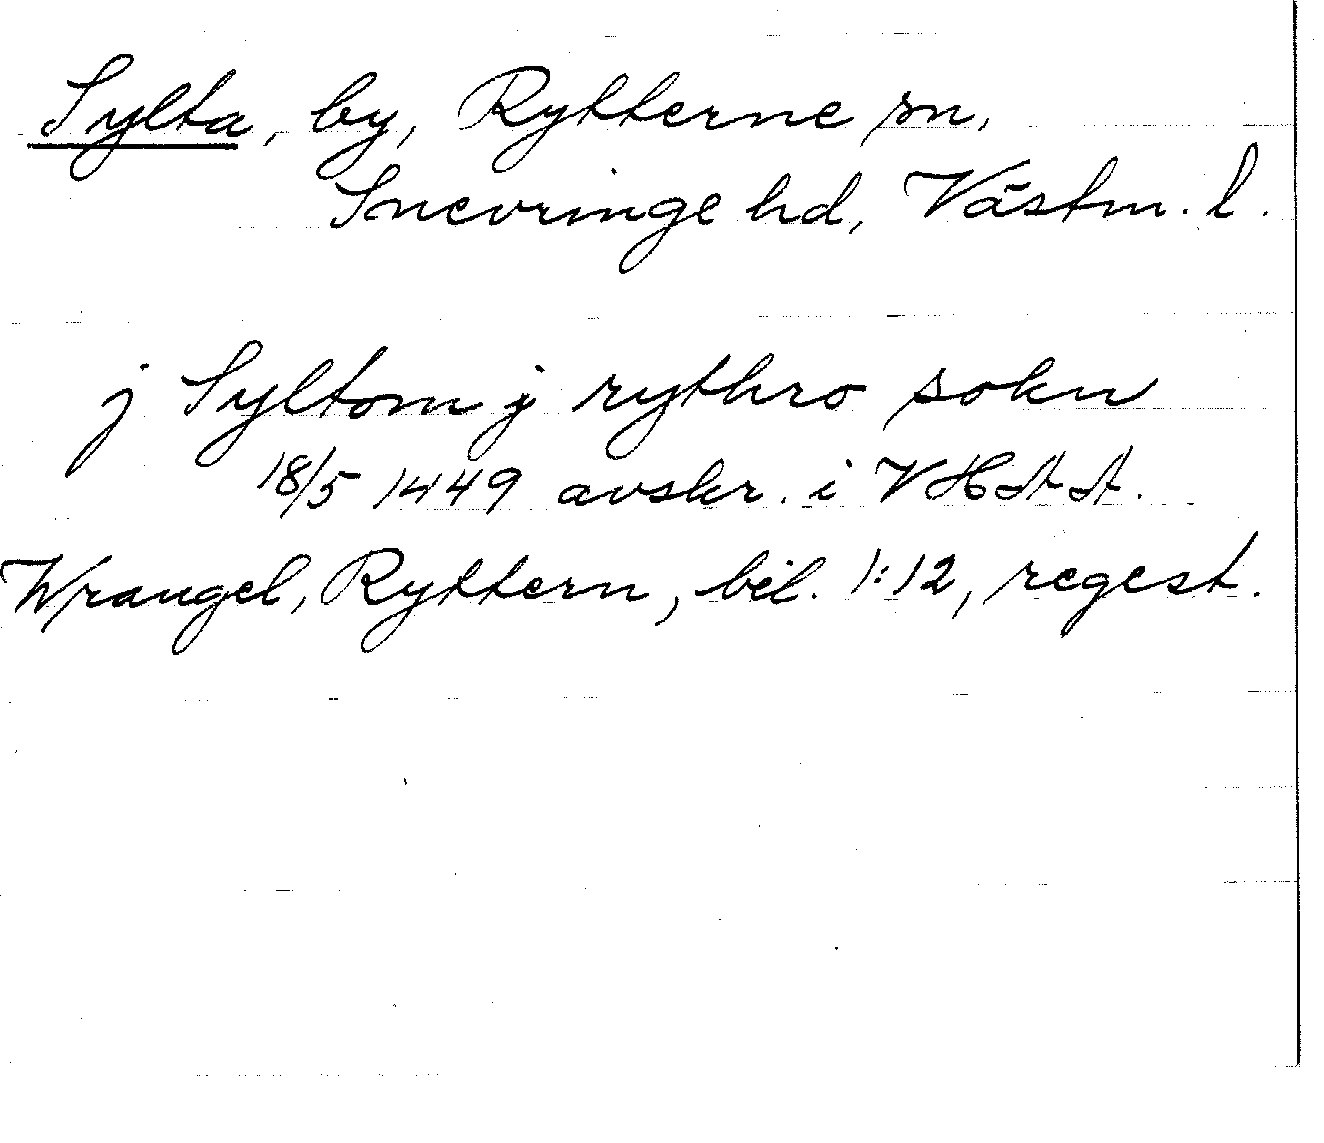 Sylta, by, Rytterne sn,
Snevringe hd, Västm. l.
j Syltom j rythro sokn
18/5 1449 avskr. i VHAA.
Wrangel, Ryttern, bil. 1:12, regest.